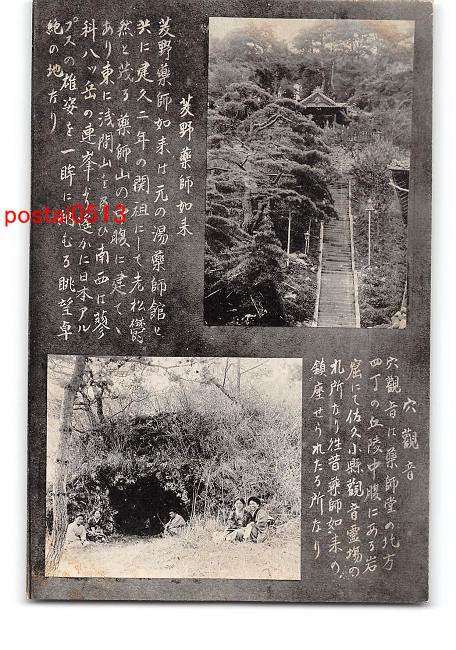 菱野藥師如来
菱野藥師如来は元の湯藥師館と
共に建久二年の開祖にして老松鬱
然と茂る藥師山の腹に建てゝ
あり東に浅間山を 南西は蓼
科八ッ岳の連峯 遥かに日本アル
プスの雄姿を一眸に眺むる眺望卓
絶の地なり
穴觀音
穴觀音は藥師堂の北方
四丁の丘陵中腹にある岩
窟にて佐久小縣觀音霊場の
札所なり往昔藥師如来の
鎮座せられたる所なり
postal0513